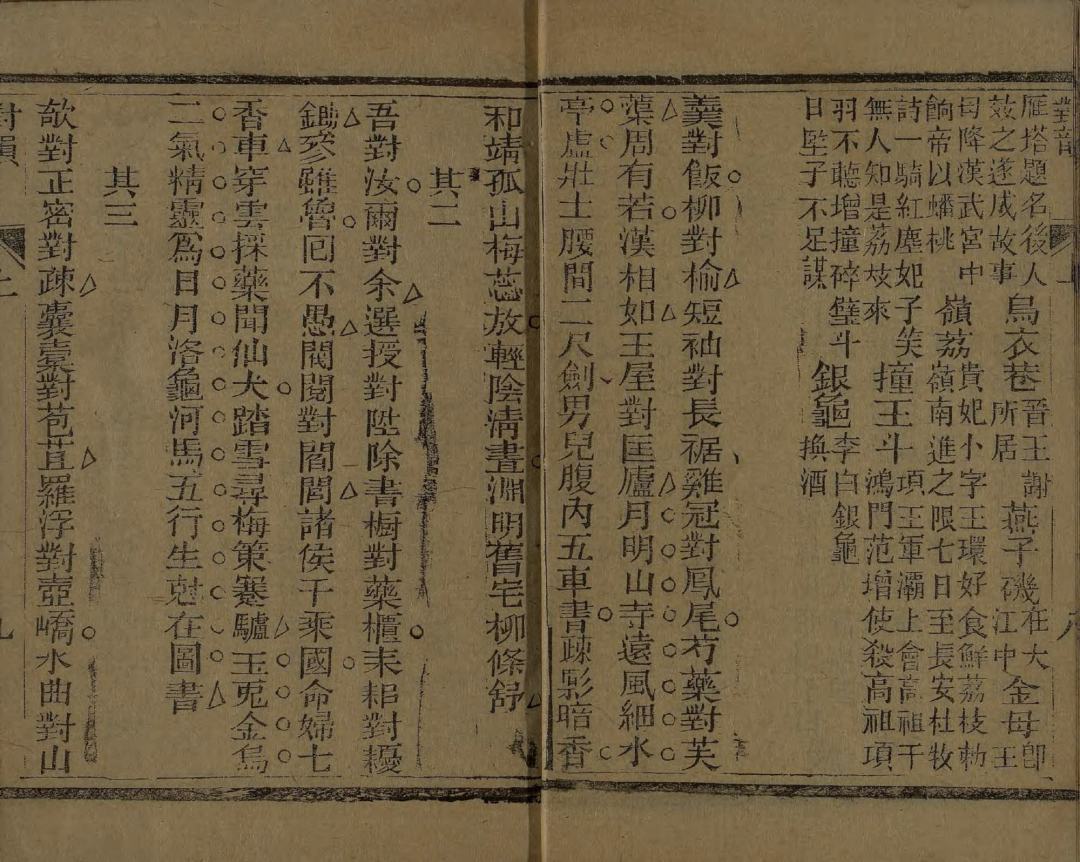 對韻
雁塔題名後人
效之遂成故事
烏衣巷
晉王謝
所居
燕子磯
在大
江中
金母
即
王
母降漢武宮中
餉帝以蟠桃
嶺荔
貴妃小字玉環好食鮮荔枝勅
嶺南進之限七日至長安杜牧
詩一騎紅塵妃子笑
無人知是荔枝來
撞玉斗
項王軍灞上會高祖于
鴻門范增使殺高祖項
羽不聽增撞碎璧斗
曰堅子不足謀
銀龜
李白銀龜
換酒
八
羹對飯柳對榆短袖對長裾雞冠對鳳尾芍藥對芙
蕖周有若漢相如王屋對匡廬月明山寺遠風細水
亭虛壯士腰間三尺劍男兒腹內五車書疎影暗香
和靖孤山梅蕊放輕陰清晝淵明舊宅柳條舒
其二
吾對汝爾對余選授對陞除書櫥對藥櫃耒耜對耰
鋤參雖魯回不愚閥閱對閻閭諸侯千乘國命婦七
香車穿雲採藥聞仙犬踏雪尋梅策蹇驢玉兎金烏
二氣精靈為日月洛龜河馬五行生尅在圖書
其三
欹對正密對疎囊橐對苞苴羅浮對壺嶠水曲對山
對韻
上
九